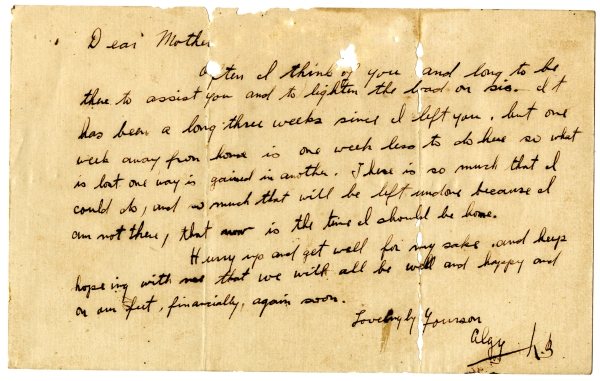 Dear Mother
Often I think of you and long to be
there to assist you and to lighten the load on sis. It
has been a long three weeks since I left you, but one
week away from home is one week less to do here so what
is lost one way is gained in another. There is so much that I
could do, and so much that will be left undone because I
am not there, that now is the time I should be home.
Hurry up and get well for my sake, and keep
hopeing with me that we will all be well and happy and
on our feet, financially, again soon.
Lovelingly Yourson
Algy